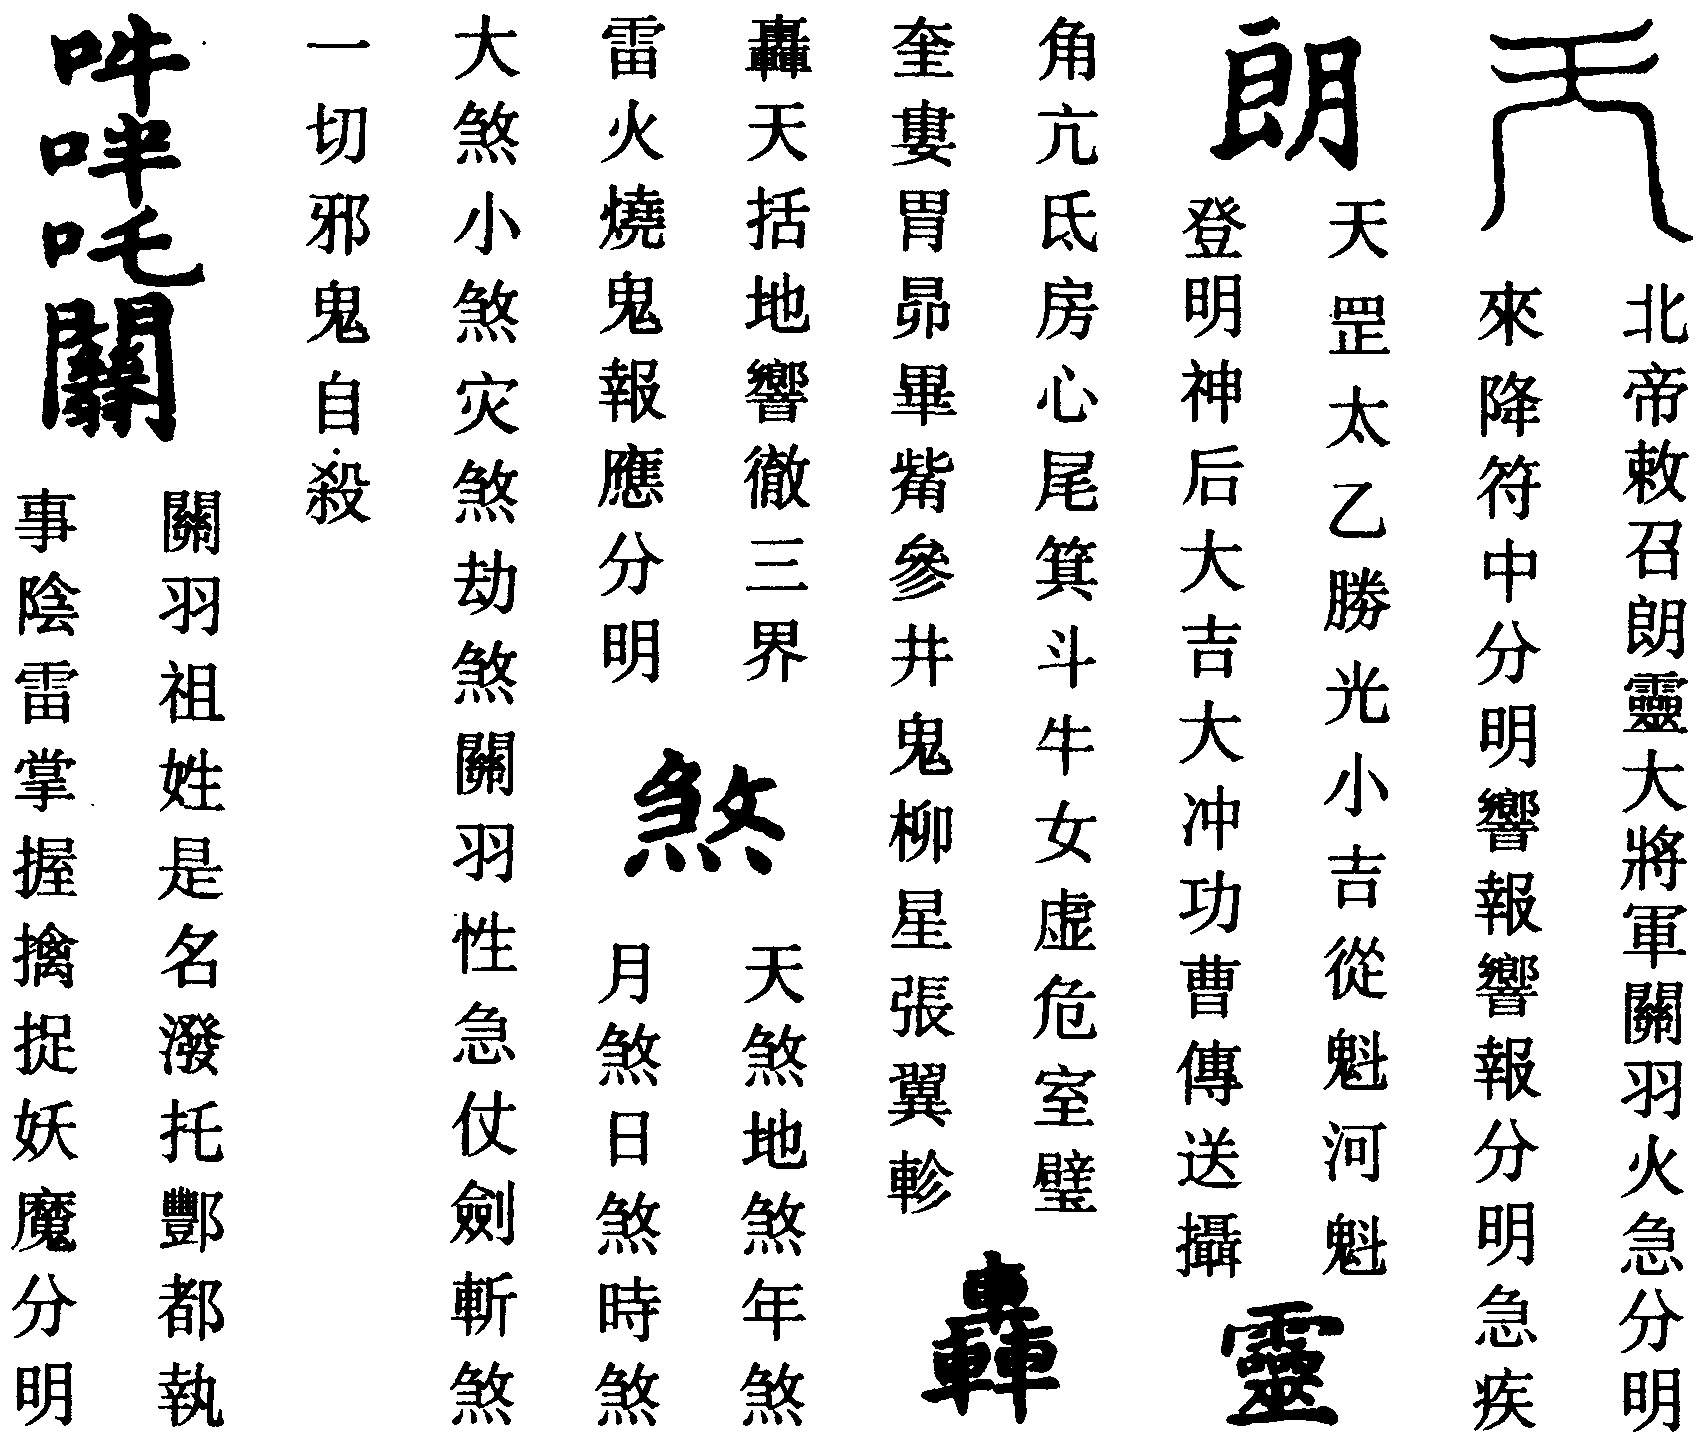 天
北帝敕召朗靈大將軍關羽火急分明
來降符中分明響報響報分明急疾
朗
天罡太乙勝光小吉從魁河魁
登明神后大吉大冲功曹傳送攝
靈
角亢氐房心尾箕斗牛女虛危室璧
奎婁胃昴畢觜參井鬼柳星張翼軫
轟
轟天括地響徹三界
雷火燒鬼報應分明
煞
天煞地煞年煞
月煞日煞時煞
大煞小煞灾煞劫煞關羽性急仗劍斬煞
一切邪鬼自殺
吽吒關
關羽祖姓是名潑托酆都執
事陰雷掌握擒捉妖魔分明